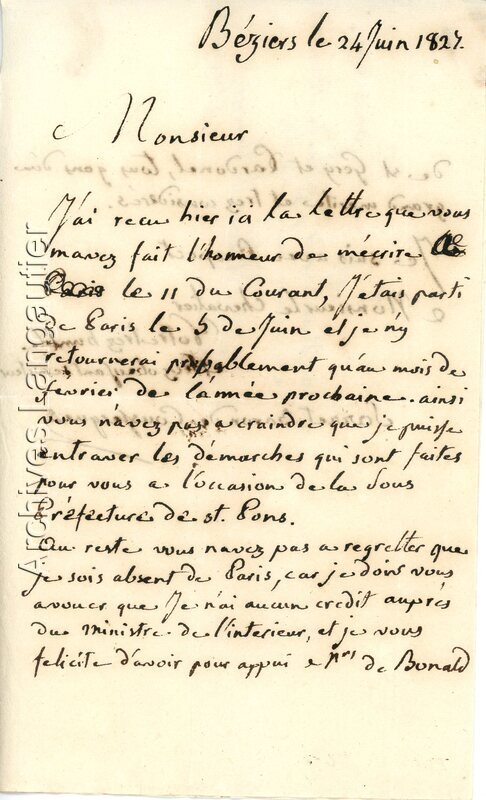 Béziers le 24 Juin 1827.
Monsieur
J'ai recu hier ici la lettre que vous
mavez fait l'honneur de mécrire de
Paris le 11 du Courant, J'etais parti
de Paris le 5 de Juin et je n'y
retournerai probablement qu'au mois de
février de l'année prochaine. ainsi
vous n'avez pas a craindre que je puisse
entraver les démarches qui sont faites
pour vous a l'occasion de la Sous
préfecture de st. Pons.
Au reste vous navez pas a regretter que
je sois absent de Paris, car je dois vous
avouer que Je n'ai aucun credit auprès
du ministre de l'interieur, et je vous
felicite d'avoir pour appui Mrs de Bonald
Archives Langautier